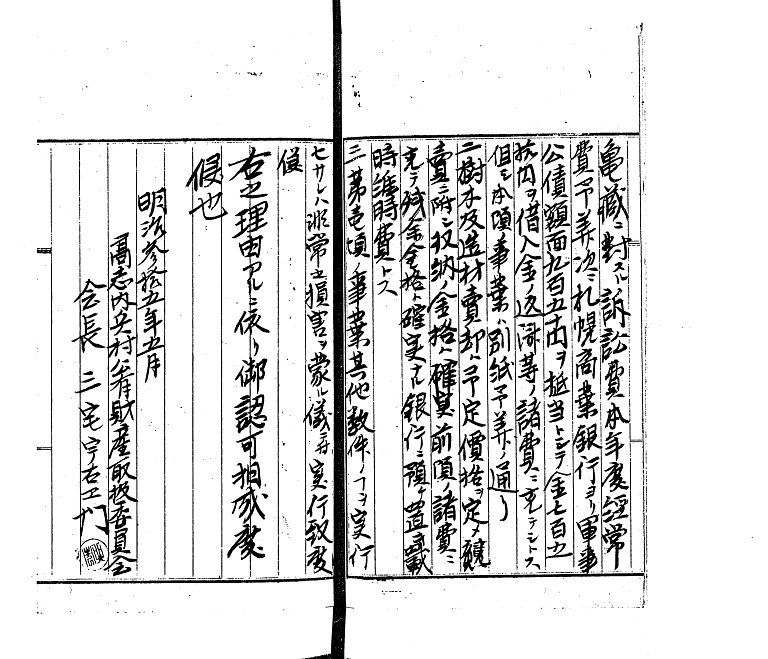 亀蔵ニ対スル訴訟費本年度経常
費予算次ニ札幌商業銀行ヨリ軍事
公債額面九百五十円ヲ抵当トシテ金七百五
拾円ヲ借入金ノ返済等ノ諸費ニ充テントス
但シ本項事業ハ別紙予算ノ通リ
二樹木及造材売却ハ予定価格ヲ定メ競
売ニ附シ収納ノ金格ハ確実前項ノ諸費ニ
充テ残余金格ハ確実ナル銀行ニ預ケ置キ
時維時費トス
三第壱項ノ事業其他数件ノヿヲ実行
セサレハ非常之損害ヲ蒙ル儀ニ付実行致度
儀
右之理由アルニ依リ御認可相成度
候也
明治参拾五年五月
高志内兵村公有財産取扱委員会
会長 三宅宇右エ門